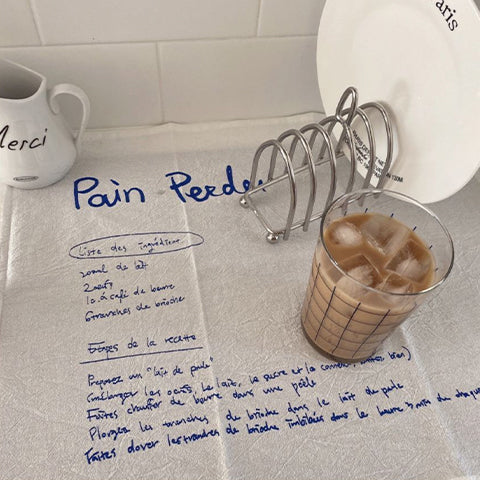 aris
Merci
Pain Perdu
Liste des ingrédients
200ml de lait
2 œufs
1 c. à café de beurre
6 tranches de brioche
Étapes de la recette
Préparez un "lait de poule"
(mélanger les œufs, le lait, le sucre et la bien)
Faites chauffer de beurre dans une poêle
Plongez les tranches de brioche dans le lait de poule
Faites dorer les tranches de brioche imbibées dans le beurre 3 min du